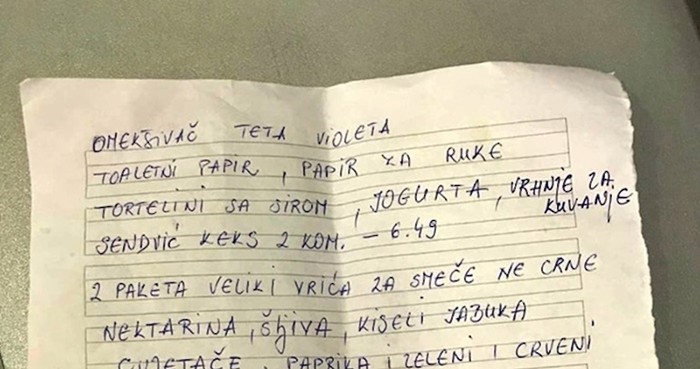 OMEKŠIVAČ TETA VIOLETA
TOALETNI PAPIR, PAPIR ZA RUKE
TORTELINI SA SIROM, JOGURTA, VRHNJE ZA KUVANJE
SENDVIĆ KEKS 2 KOM. - 6.49
2 PAKETA VELIKI VRIĆA ZA SMEČE NE CRNE
NEKTARINA, ŠLJIVA, KISELI JABUKA
PAPRIKA I ZELENI I CRVENI